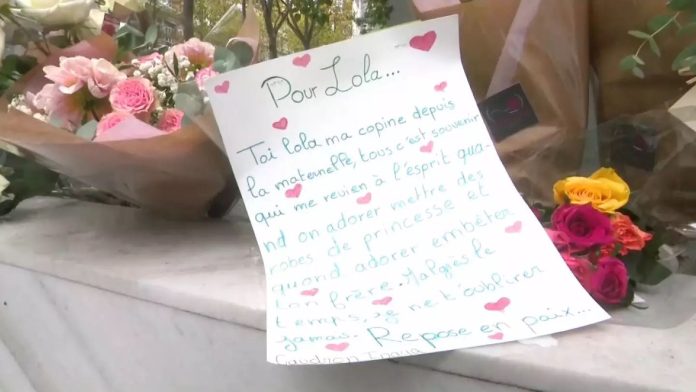 Pour Lola...
Toi lola ma copine depuis
la maternelle, tous c'est souvenir
qui me revien à l'esprit qua-
nd on adorer mettre des
robes de princesse et
quand adorer embêter
ton frère. Malgres le
temps, je ne t'oublirer
jamas. Repose en paix...